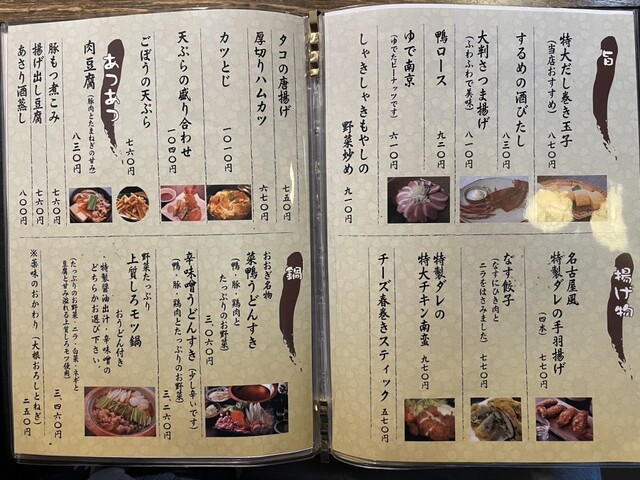 旨
特大だし巻き玉子
(当店おすすめ)
八七〇円
するめの酒びたし
八三〇円
大判さつま揚げ
(ふわふわで美味)
八一〇円
鴨ロース
九二〇円
ゆで南京
(ゆでたピーナッツです)
六一〇円
しゃきしゃきもやしの
野菜炒め
九一〇円
揚げ物
名古屋風
特製ダレの手羽揚げ
(四本)
七七〇円
なす餃子
(なすにひき肉と
ニラをはさみました)
七七〇円
特製ダレの
特大チキン南蛮
九七〇円
チーズ春巻きスティック
五七〇円
タコの唐揚げ
七五〇円
厚切りハムカツ
六七〇円
カツとじ
一〇一〇円
天ぷらの盛り合わせ
一〇四〇円
ごぼうの天ぷら
七六〇円
あつあつ
肉豆腐
(豚肉とたまねぎの甘み)
八三〇円
豚もつ煮こみ
七六〇円
揚げ出し豆腐
七六〇円
あさり酒蒸し
八〇〇円
鍋
おおぎ名物
菜鴨うどんすき
(鴨・豚・鶏肉と
たっぷりのお野菜)
三〇六〇円
辛味噌うどんすき(少し辛いです)
(鴨・豚・鶏肉とたっぷりのお野菜)
三、二六〇円
野菜たっぷり
上質しろモツ鍋
おうどん付き
・特製醤油出汁・辛味噌の
どちらかお選び下さい。
(たっぷりのお野菜・ニラ・白菜・ネギと
豆腐と甘み溢れる上質しろモツ使用)
三、四六〇円
※薬味のおかわり(大根おろしとねぎ)
二五〇円